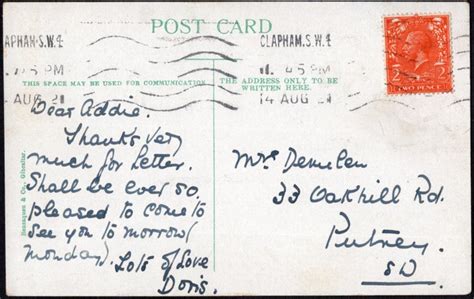 POST CARD
CLAPHAM.S.W.4
CLAPHAM.S.W.4
45 PM
1. 45 PM
THIS SPACE MAY BE USED FOR COMMUNICATION
THE ADDRESS ONLY TO BE
WRITTEN HERE.
AUG 21
14 AUG 21
TWO PENCE
2 2
Beanzaquen & Co., Gibraltar.
Dear Addie.
Thanks very
much for letter.
Shall be ever so
pleased to come to
see you to morrow (
monday). Lots of Love
Doris.
33 Oakhill Rd.
Putney